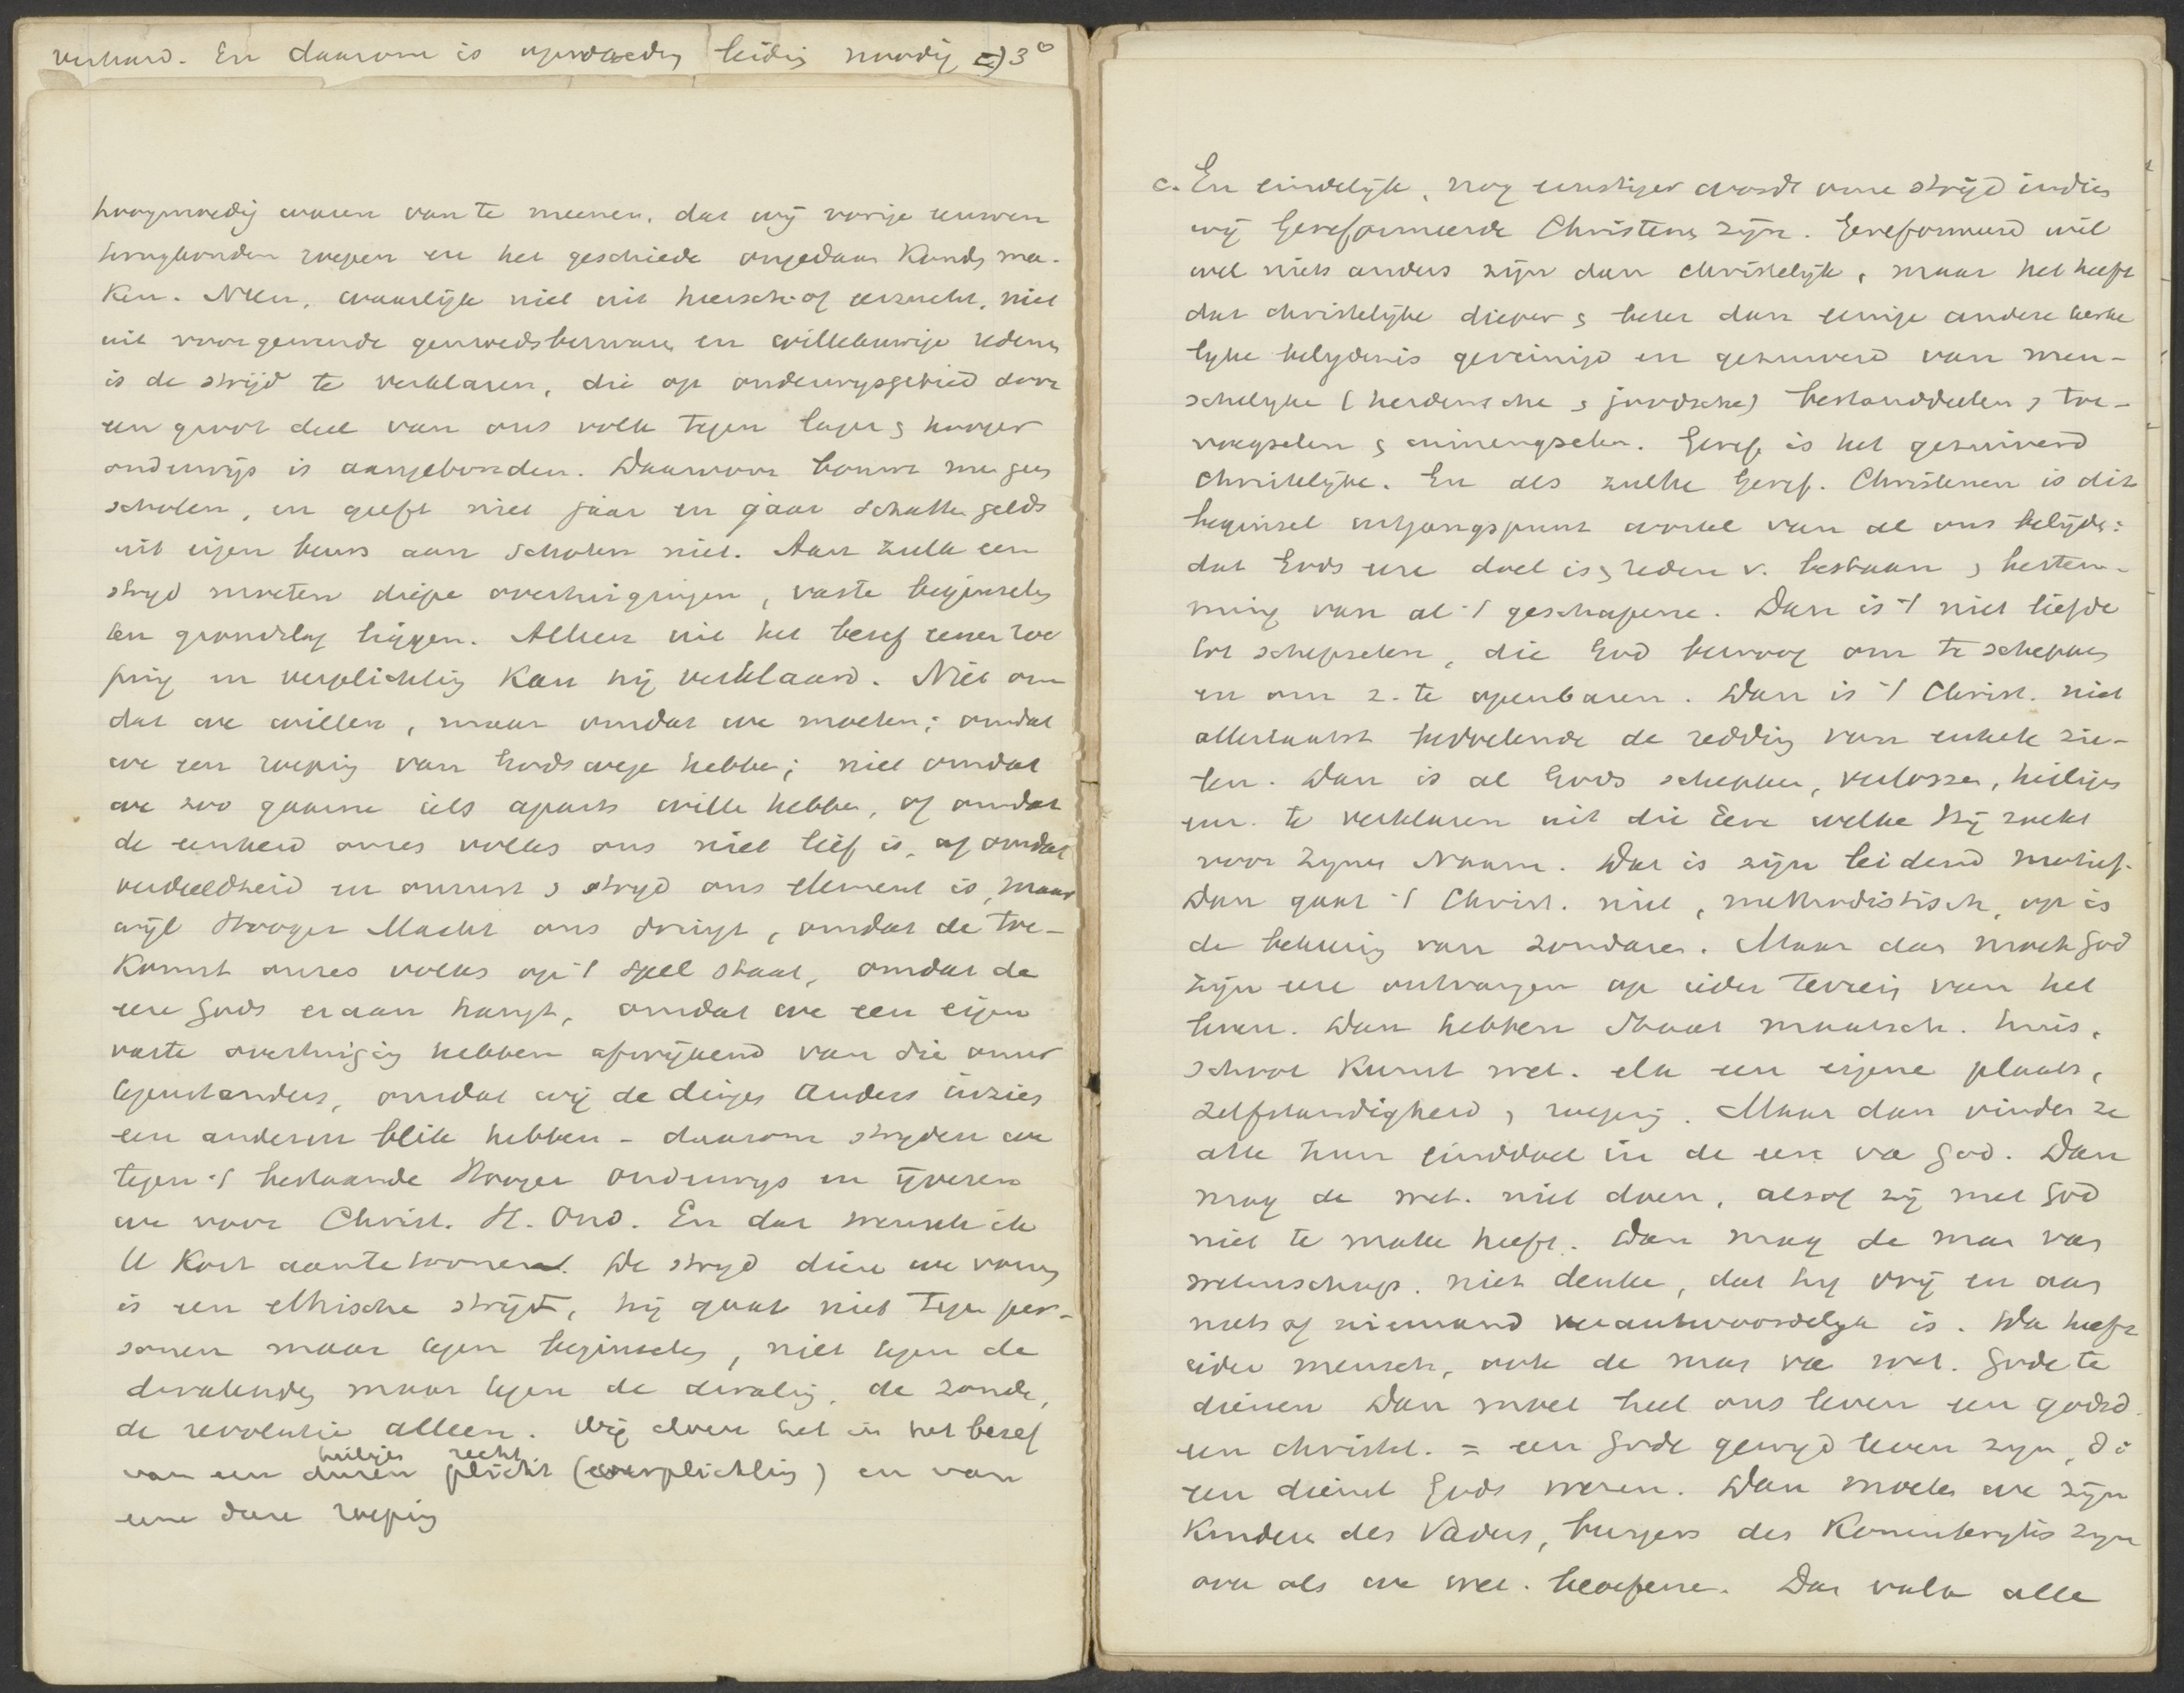 verhard. En daarom is opvoeding leiding noodig c) 3°
hoogmoedig waren van te meenen, dat wij vorige eeuwen
terugkonden roepen en het geschiede ongedaan konden ma-
ken. Neen, waarlijk niet uit heersch- of eerzucht, niet
uit voorgewende gemoedsbezwaren en willekeurige redenen
is de strijd te verklaren, die op onderwijsgebied door
een groot deel van ons volk tegen lager & hooger
onderwijs is aangebonden. Daarvoor bouwt men geen
scholen, en geeft niet jaar en jaar schatten gelds
uit eigen beurs aan scholen niet. Aan zulk een
strijd moeten diepe overtuigingen, vaste beginselen
ten grondslag liggen. Alleen uit het besef eener roe
ping en verplichting kan hij verklaard. Niet om
dat we willen, maar omdat we moeten; omdat
we een roeping van Godswege hebben; niet omdat
we zoo gaarne iets aparts wille hebben, of omdat
de eenheid onzes volks ons niet lief is, of omdat
verdeeldheid en onrust & strijd ons element is, maar
wijl Hooger Macht ons dringt, omdat de toe-
komst onzes volks op 't spel staat, omdat de
eere Gods eraan hangt, omdat we een eigen
vaste overtuiging hebben afwijkend van die onzer
tegenstanders, omdat wij de dingen anders inzien
een anderen blik hebben - daarom strijden we
tegen 't bestaande Hooger Onderwijs en ijveren
we voor Christ. H. Ond. En dat wensch ik
U kort aantetoonen. De strijd dien we voeren
is een ethische strijd, hij gaat niet tegen per-
sonen maar tegen beginselen, niet tegen de
dwalenden maar tegen de dwaling, de zonde,
de revolutie alleen. Wij doen het in het besef
heilige recht
van een duren plicht (verplichting) en van
eene dure roeping
c. En eindelijk, nog ernstiger wordt onze strijd indien
wij Gereformeerde Christenen zijn. Gereformeerd wil
wel niets anders zijn dan christelijk, maar het heeft
dat christelijke dieper & beter dan eenige andere kerke
lijke belijdenis gereinigd en gezuiverd van men-
schelijke (heidensche & joodsche) bestanddeelen & toe-
voegselen & inmengselen. Geref. is het gezuiverd
christelijke. En als zulke Geref. Christenen is dit
beginsel uitgangspunt wortel van al ons belijden:
dat Gods eere doel is & reden v. bestaan & bestem-
ming van al 't geschapene. Dan is 't niet liefde
tot schepselen, die God bewoog om te scheppen
en om z. te openbaren. Dan is 't Christ. niet
allerlaatst bedoelende de redding van enkele zie-
len. Dan is al Gods scheppen, verlossen, heiligen
enz. te verklaren uit die Eere welke Hij zoekt
voor Zijnen Naam. Dat is zijn leidend motief.
Dan gaat 't Christ. niet, methodistisch, op in
de bekeering van zondaren. Maar dan moet God
zijn eere ontvangen op ieder terrein van het
leven. Dan hebben Staat maatsch. huis,
school kunst wet. elk een eigene plaats,
zelfstandigheid & roeping. Maar dan vinden ze
alle hun einddoel in de eere va God. Dan
mag de wet. niet doen, alsof zij met God
niet te make heeft. Dan mag de man van
wetenschap. niet denke, dat hij vrij en aan
niets of niemand verantwoordelijk is. Da heeft
ieder mensch, ook de man va wet. Gode te
dienen Dan moet heel ons leven een godsd.
een christel. = een Gode gewijd leven zijn, d i
een dienst Gods wezen. Dan moeten we zijn
Kinderen des Vaders, burgers des Koninkrijks zijn
ook als we wet. beoefene. Dan valt alle